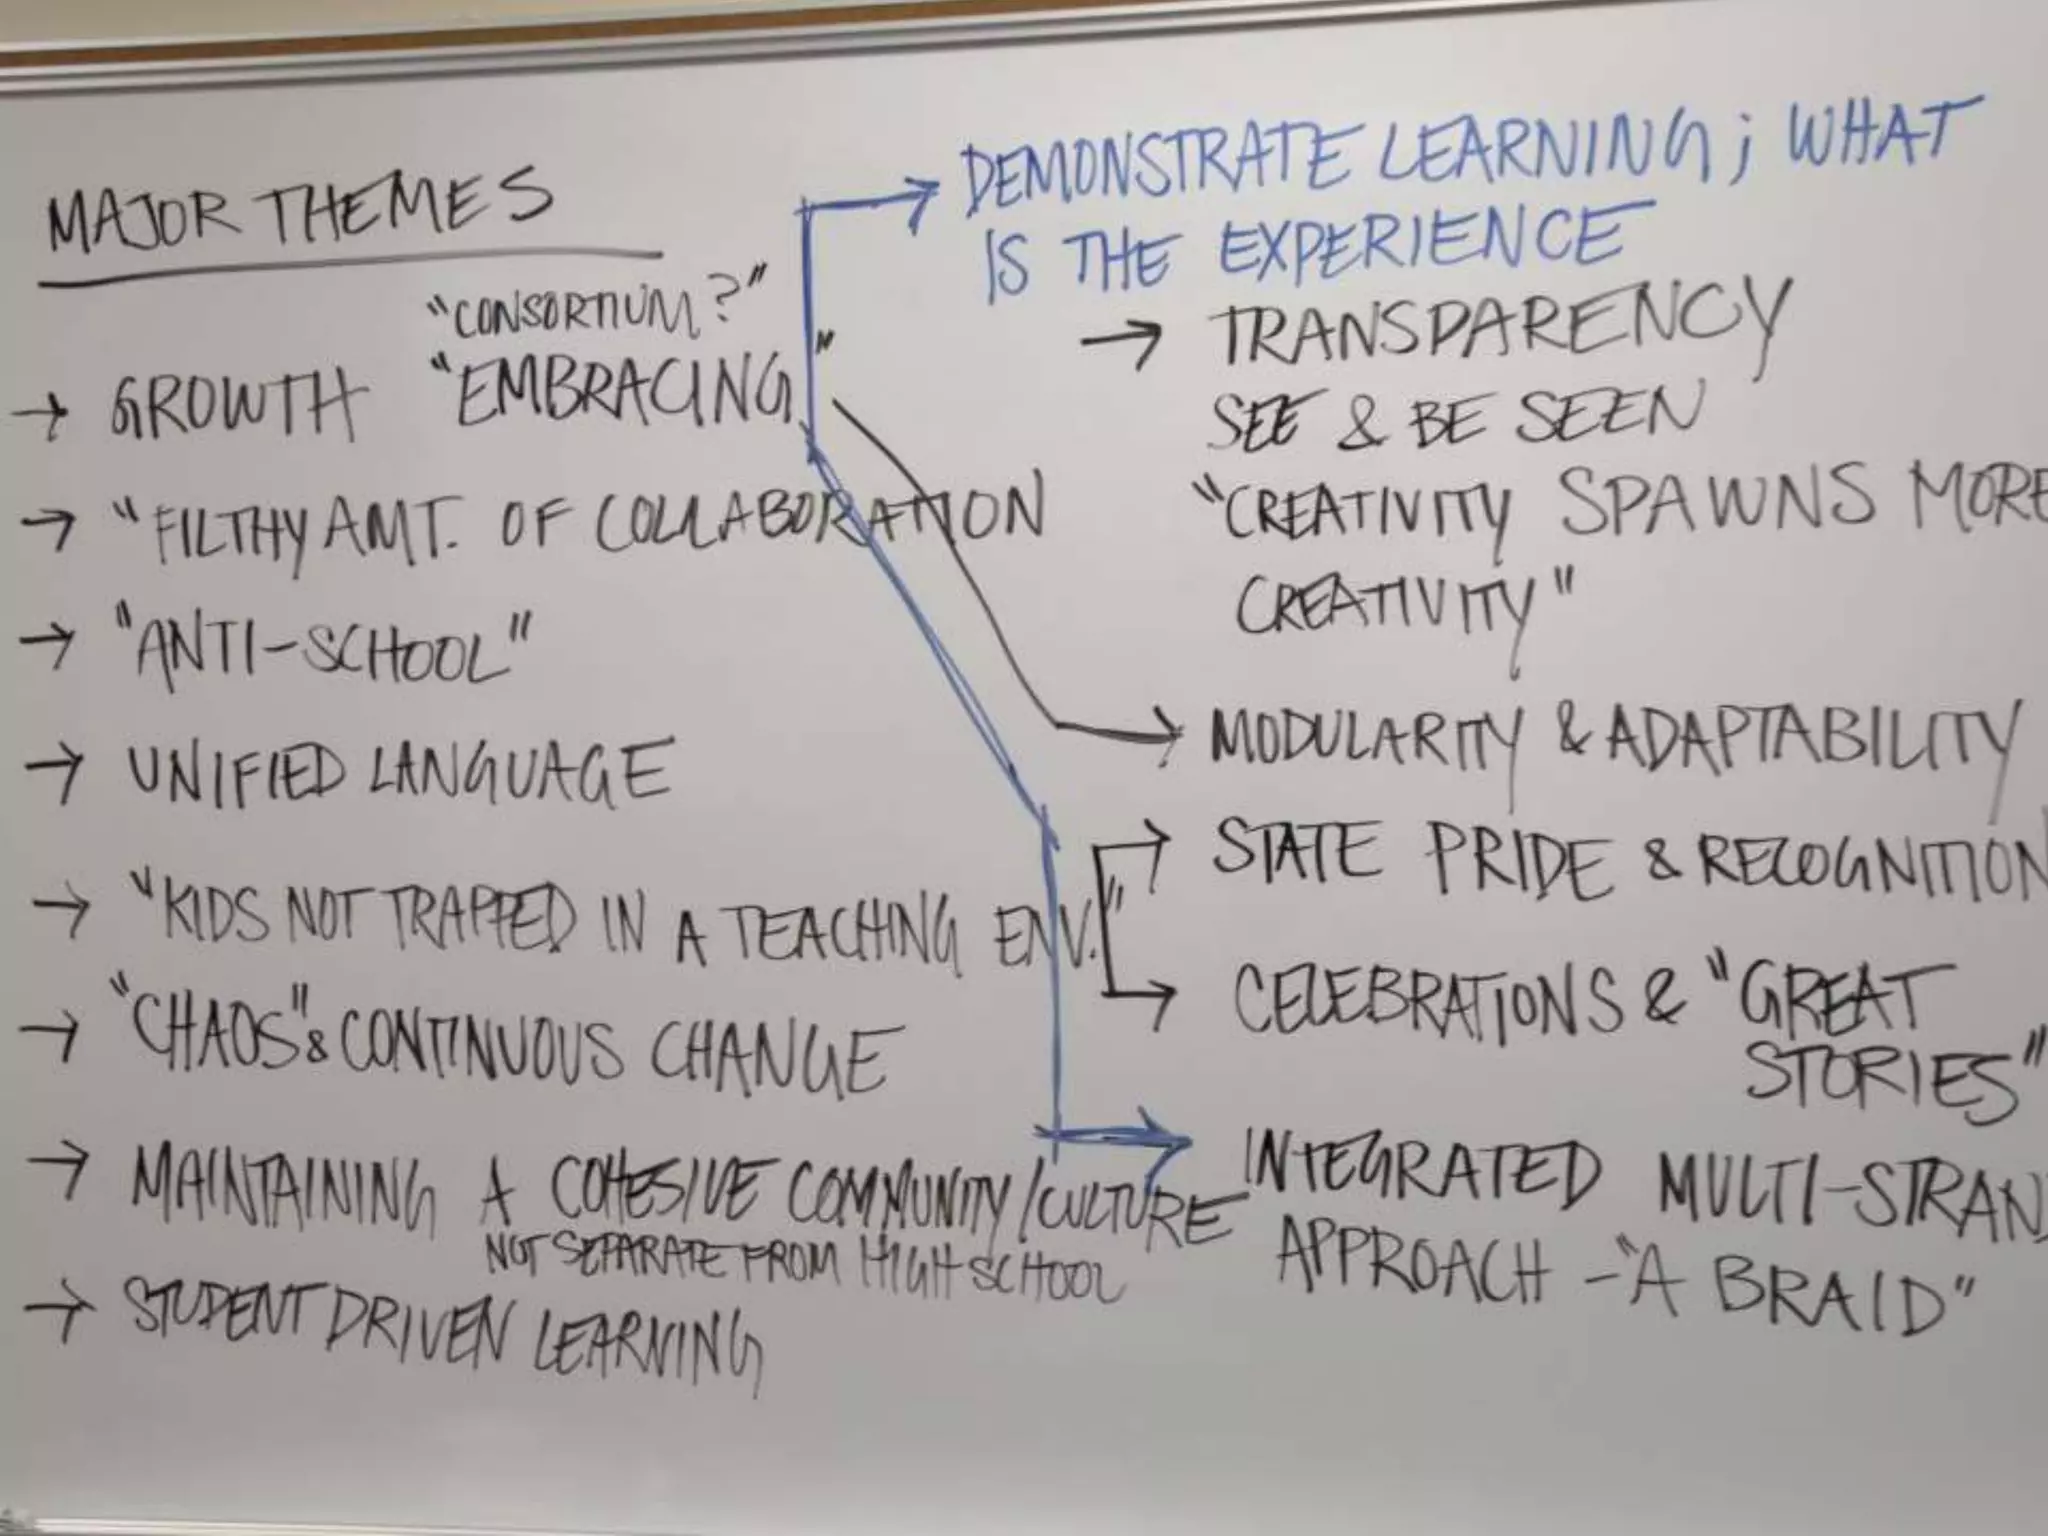 MAJOR THEMES
"CONSORTIUM?"
→ GROWTH "EMBRACING"
→ "FILTHY AMT. OF COLLABORATION
→ "ANTI-SCHOOL"
→ UNIFIED LANGUAGE
→ "KIDS NOT TRAPPED IN A TEACHING ENV."
→ "CHAOS" & CONTINUOUS CHANGE
→ MAINTAINING A COHESIVE COMMUNITY/CULTURE
NOT SEPARATE FROM HIGH SCHOOL
→ STUDENT DRIVEN LEARNING
→ DEMONSTRATE LEARNING; WHAT
IS THE EXPERIENCE
→ TRANSPARENCY
SEE & BE SEEN
"CREATIVITY SPAWNS MORE
CREATIVITY"
→ MODULARITY & ADAPTABILITY
→ STATE PRIDE & RECOGNITION
→ CELEBRATIONS & "GREAT
STORIES"
→ INTEGRATED MULTI-STRAN
APPROACH - "A BRAID"